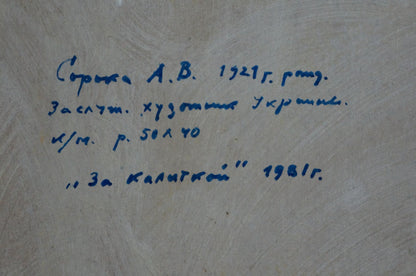 Сорока А.В. 1921 г. рожд.
Заслуж. художник Украины.
к/м. р. 50х40
„За калиткой" 1981г.